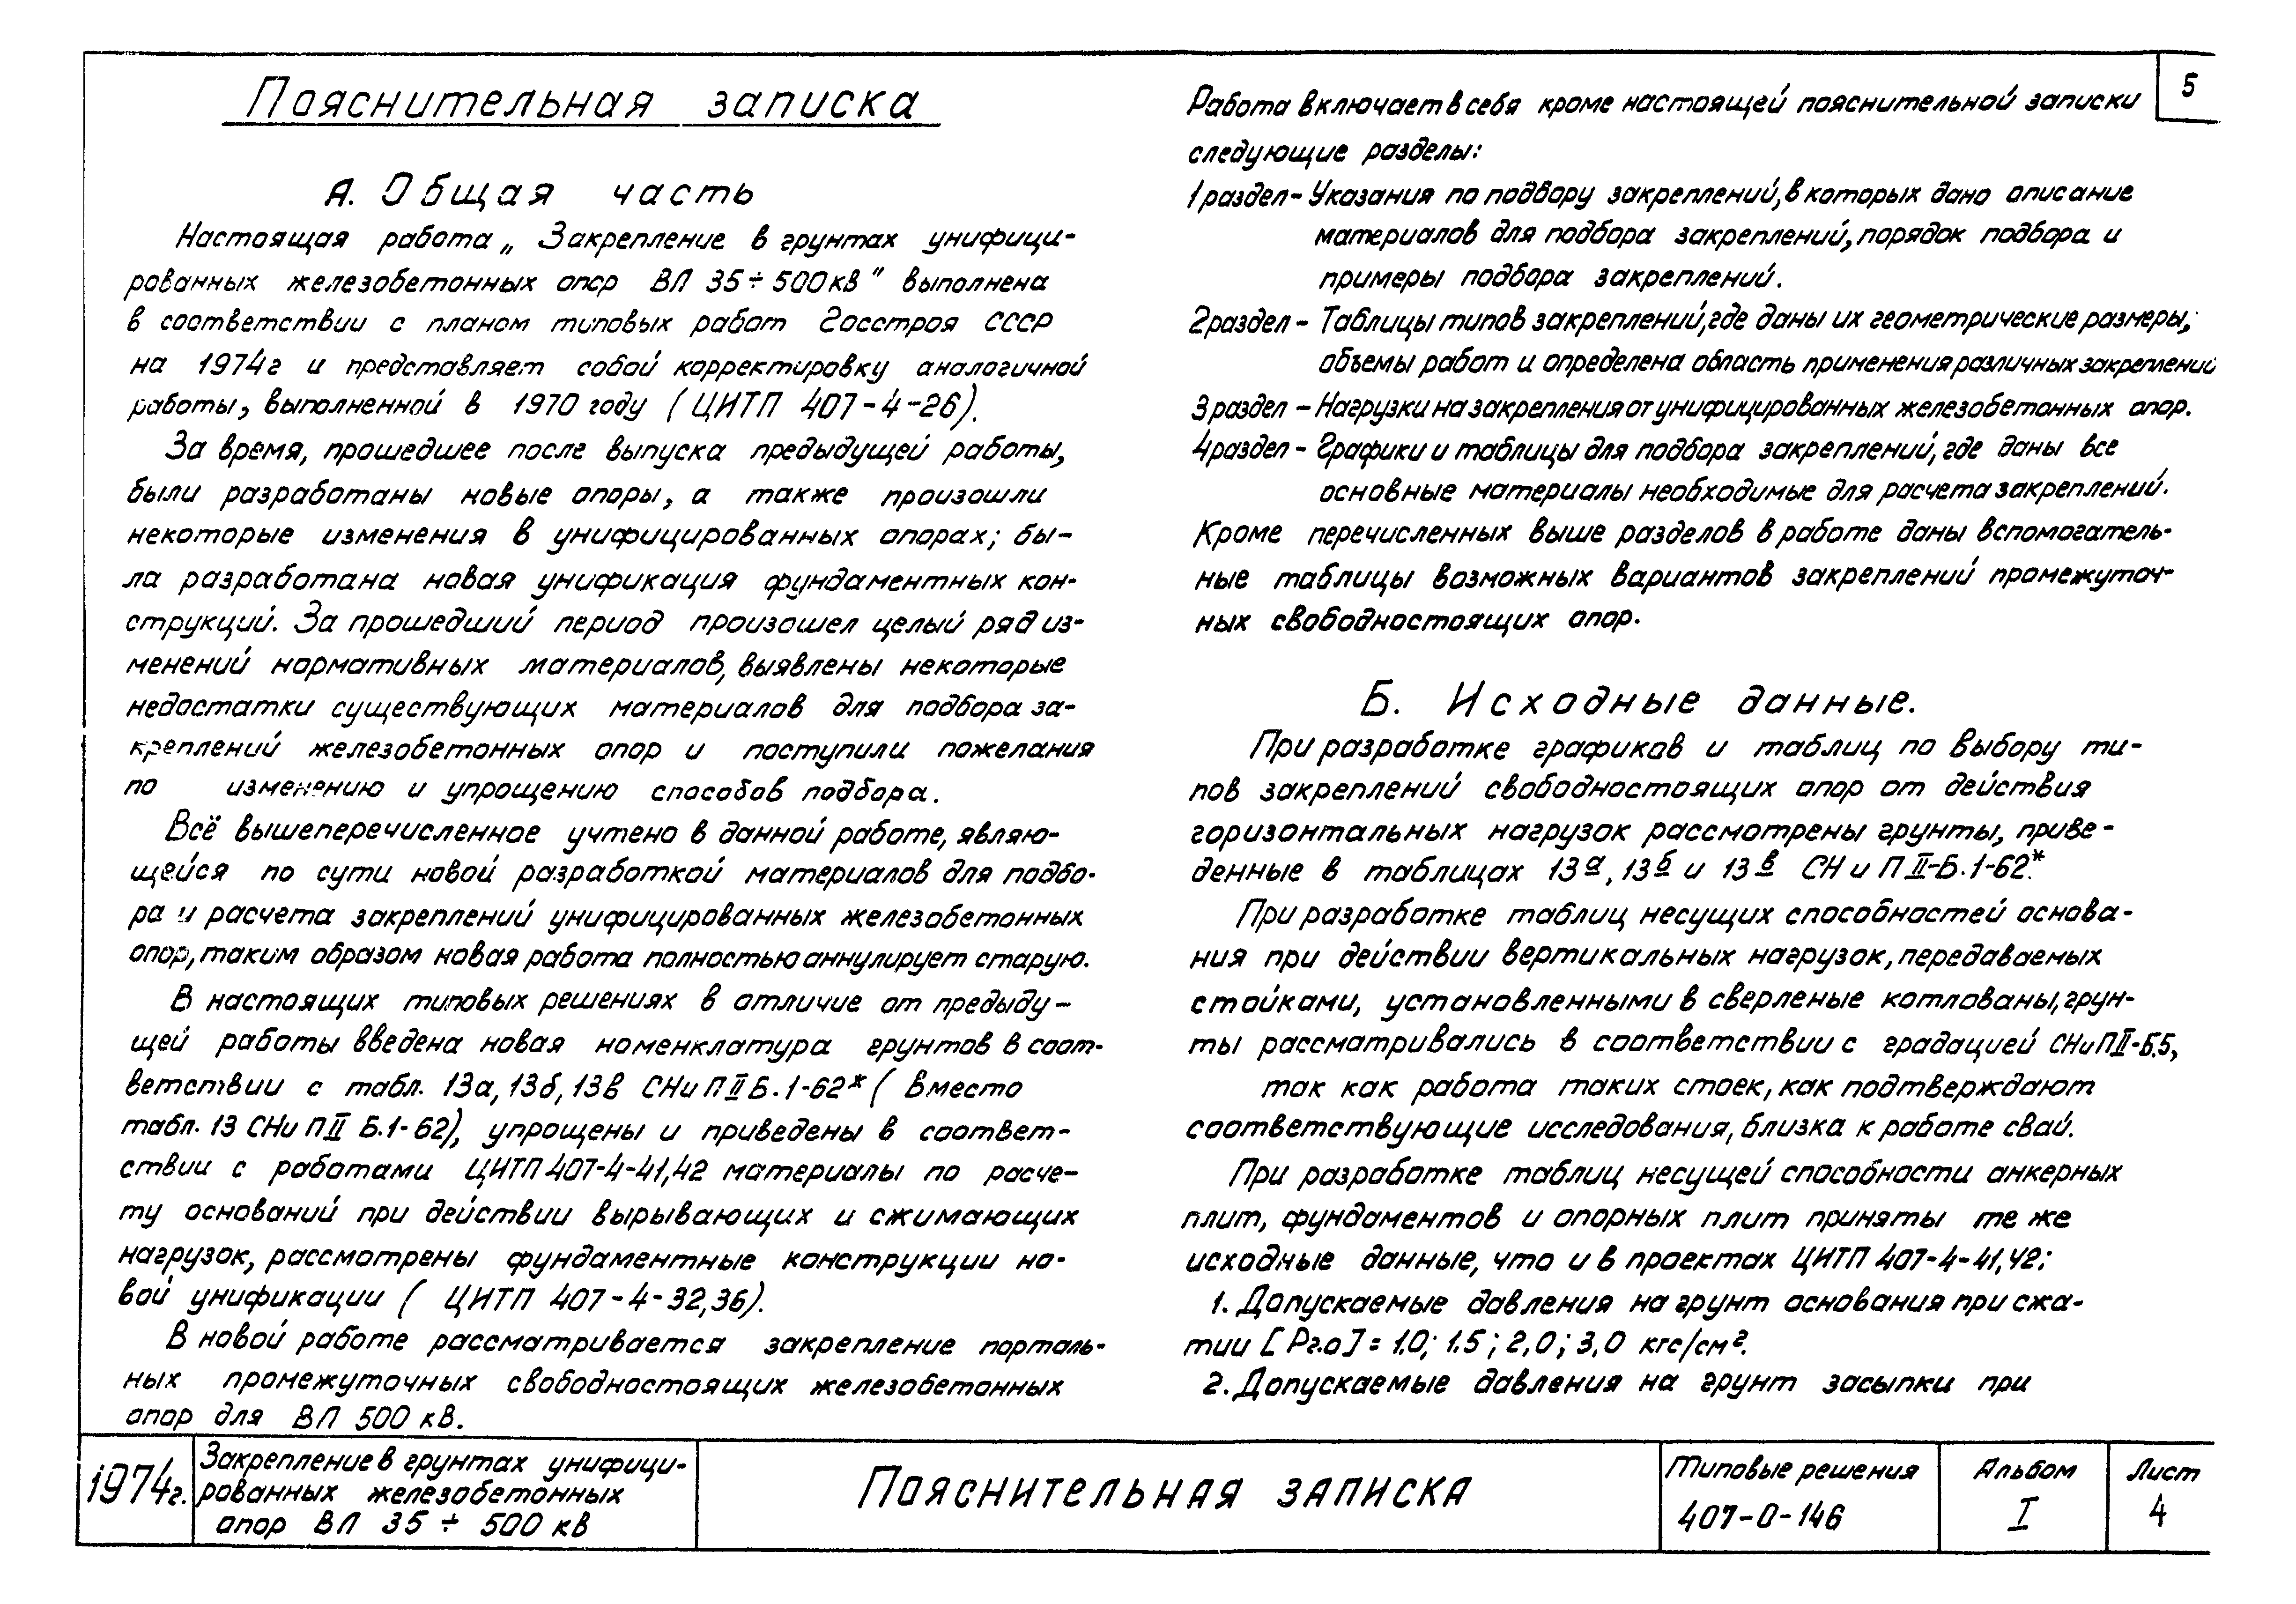 Пояснительная записка
А. Общая часть
Настоящая работа „ Закрепление в грунтах унифици-
рованных железобетонных опор ВЛ 35÷500кв" выполнена
в соответствии с планом типовых работ Госстроя СССР
на 1974г и представляет собой корректировку аналогичной
работы, выполненной в 1970 году (ЦИТП 407-4-26).
За время, прошедшее после выпуска предыдущей работы,
были разработаны новые опоры, а также произошли
некоторые изменения в унифицированных опорах; бы-
ла разработана новая унификация фундаментных кон-
струкций. За прошедший период произошел целый ряд из-
менений нормативных материалов, выявлены некоторые
недостатки существующих материалов для подбора за-
креплений железобетонных опор и поступили пожелания
по изменению и упрощению способов подбора.
Всё вышеперечисленное учтено в данной работе, являю-
щейся по сути новой разработкой материалов для подбо-
ра и расчета закреплений унифицированных железобетонных
опор, таким образом новая работа полностью аннулирует старую.
В настоящих типовых решениях в отличие от предыду-
щей работы введена новая номенклатура грунтов в соот-
ветствии с табл. 13а, 13б, 13в СНиП II Б.1-62* ( Вместо
табл. 13 СНиП II Б.1-62), упрощены и приведены в соответ-
ствии с работами ЦИТП 407-4-41,42 материалы по расче-
ту оснований при действии вырывающих и сжимающих
нагрузок, рассмотрены фундаментные конструкции но-
вой унификации ( ЦИТП 407-4-32,36).
В новой работе рассматривается закрепление порталь-
ных промежуточных свободностоящих железобетонных
опор для ВЛ 500 кВ.
5
Работа включает в себя кроме настоящей пояснительной записки
следующие разделы:
1 раздел - Указания по подбору закреплений, в которых дано описание
материалов для подбора закреплений, порядок подбора и
примеры подбора закреплений.
2 раздел - Таблицы типов закреплений, где даны их геометрические размеры,
объемы работ и определена область применения различных закреплений
3 раздел - Нагрузки на закрепления от унифицированных железобетонных опор.
4 раздел - Графики и таблицы для подбора закреплений, где даны все
основные материалы необходимые для расчета закреплений.
Кроме перечисленных выше разделов в работе даны вспомогатель-
ные таблицы возможных вариантов закреплений промежуточ-
ных свободностоящих опор.
Б. Исходные данные.
При разработке графиков и таблиц по выбору ти-
пов закреплений свободностоящих опор от действия
горизонтальных нагрузок рассмотрены грунты, приве-
денные в таблицах 13а, 13б и 13в СНиП II-Б.1-62*.
При разработке таблиц несущих способностей основа-
ния при действии вертикальных нагрузок, передаваемых
стойками, установленными в сверленые котлованы, грун-
ты рассматривались в соответствии с градацией СНиП II-Б.5,
так как работа таких стоек, как подтверждают
соответствующие исследования, близка к работе свай.
При разработке таблиц несущей способности анкерных
плит, фундаментов и опорных плит приняты те же
исходные данные, что и в проектах ЦИТП 407-4-41,42:
1. Допускаемые давления на грунт основания при сжа-
тии [Рг.о] = 1.0; 1.5; 2,0; 3,0 кгс/см².
2. Допускаемые давления на грунт засыпки при
1974г.
Закрепление в грунтах унифици-
рованных железобетонных
опор ВЛ 35 ÷ 500 кв
Пояснительная записка
Типовые решения
407-0-146
Альбом
I
Лист
4